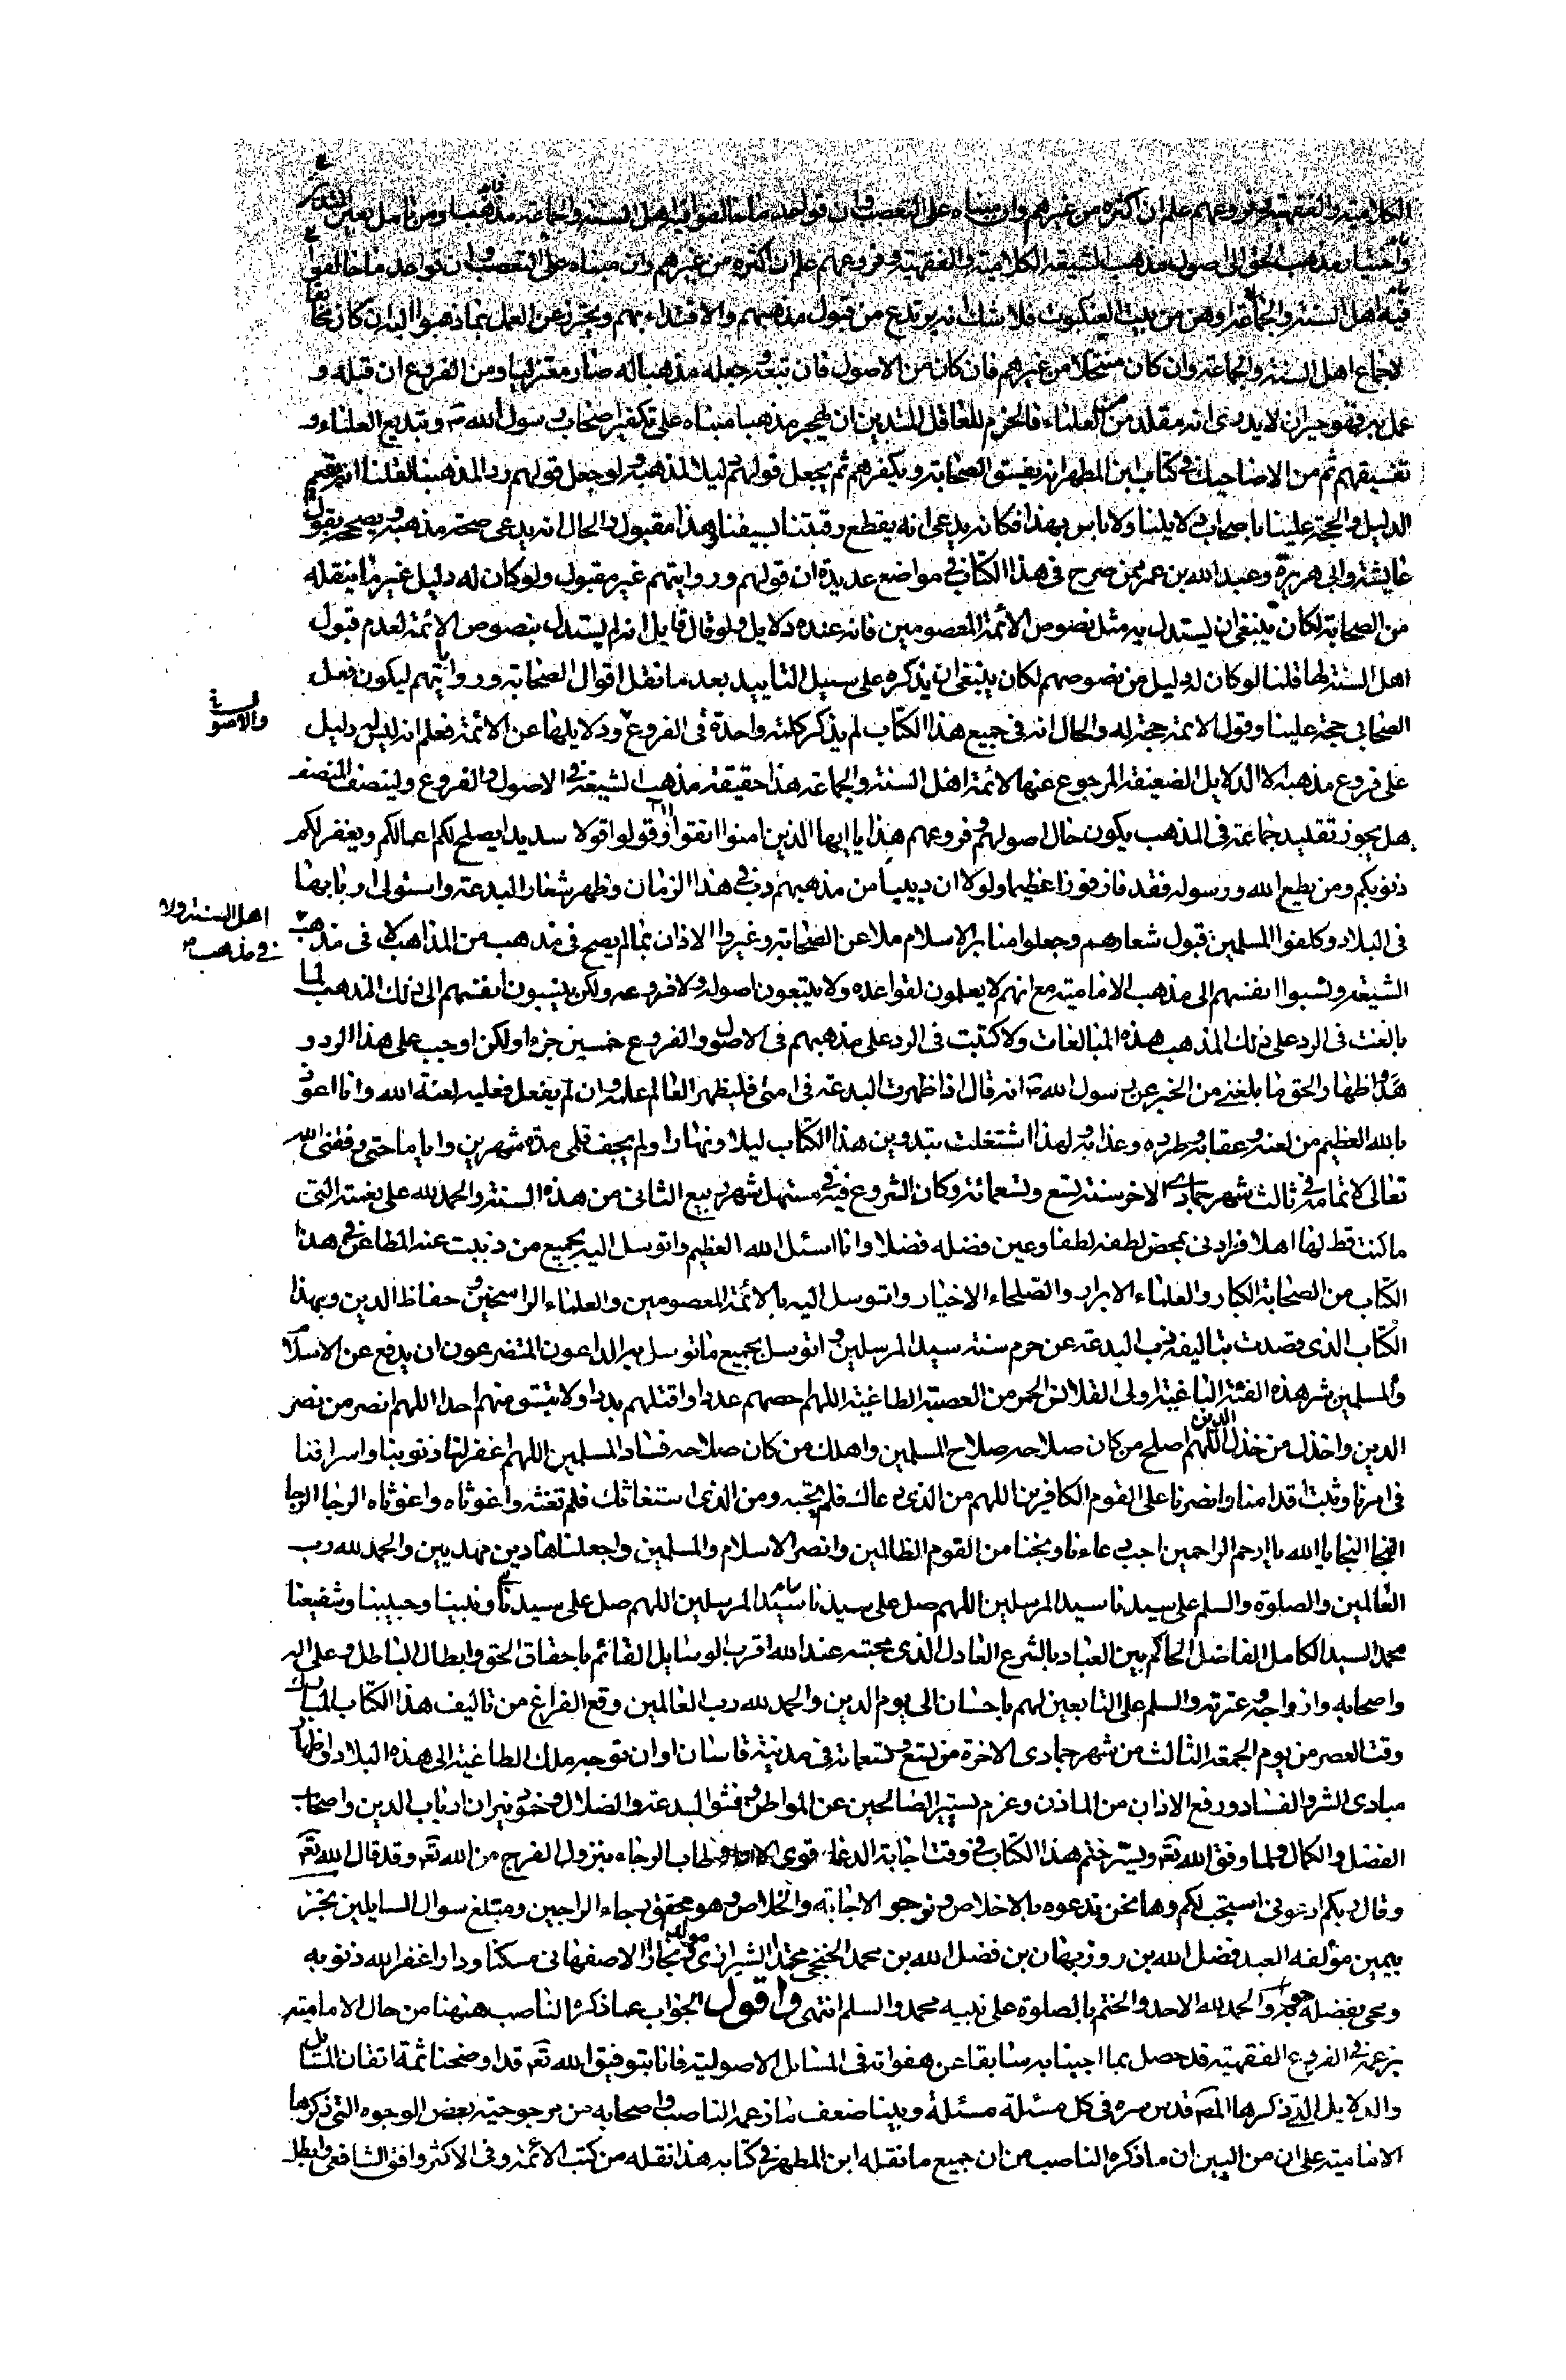 الكلامية والفقهية وفروعهم علم ان اكثره من غيرهم وان مبناه على التعصب وان قواعد ما خالفوا فيه اهل السنة والجماعة ومن تأمل بعين
واختيار مذهب الحق الى اصول مذهب الشيعة الكلامية والفقهية وفروعهم علم ان اكثره من غيرهم وان مبناه على التعصب وان قواعد ما خالفوا
فيه اهل السنة والجماعة اوهن من بيت العنكبوت فلا شك انه يرتدع من قبول مذهبهم والاقتداء بهم ويحترز عن العمل بما ذهبوا اليه ان كان مخالفا
لاجماع اهل السنة والجماعة وان كان منتحلا من غيرهم فان كان من الاصول فان تبعه وجعله مذهبا له صار معتزليا ومن الفروع ان قبله و
عمل به فهو حيران لا يدرى انه مقلد من من العلماء فالحزم للعاقل المتدين ان يهجر مذهبا مبناه على تكفير اصحاب رسول الله ص وتبديع العلماء و
تفسيقهم ثم من الاضاحيك فى كتاب ابن المطهر انه يفسق الصحابة ويكفرهم ثم يجعل قولهم دليلا لمذهبه ولو جعل قولهم رد المذهبنا لقلنا انه يقيم
الدليل والحجة علينا باصحاب دلايلنا ولا باس بهذا فكانه يدعى انه يقطع رقبتنا بسيفنا وهذا مقبول والحال انه يدعى صحة مذهبه ويصححه بقول
عايشة وابى هريرة وعبد الله بن عمر ممن صرح فى هذا الكتاب فى مواضع عديدة ان قولهم وروايتهم غير مقبول ولو كان له دليل غير ما ينقله
من الصحابة لكان ينبغى ان يستدل به مثل نصوص الأئمة المعصومين فانه عنده دلايل ولو قال قايل انه لم يستدل بنصوص الائمة لعدم قبول
اهل السنة لها قلنا لو كان له دليل من نصوصهم لكان ينبغى ان يذكره على سبيل التاييد بعد ما نقل اقوال الصحابة ورواياتهم ليكون فعل
الصحابى حجة علينا وقول الائمة حجة له والحال انه فى جميع هذا الكتاب لم يذكر كلمة واحدة فى الفروع ودلايلها عن الائمة فعلم انه ليس له دليل
والاصو
على فروع مذهبه الا الدلايل الضعيفة المرجوع عنها لائمة اهل السنة والجماعة هذا حقيقة مذهب الشيعة فى الاصول والفروع ولينصف المنصف
هل يجوز تقليد جماعة فى المذهب يكون حال اصولهم وفروعهم هذا يا ايها الذين امنوا اتقوا الله وقولوا قولا سديدا يصلح لكم اعمالكم ويغفر لكم
ذنوبكم ومن يطع الله ورسوله فقد فاز فوزا عظيما ولولا ان دبيبا من مذهبهم دب فى هذا الزمان وظهر شعار البدعة واستولى اربابها
فى البلاد وكلفوا المسلمين قبول شعارهم وجعلوا منابر الاسلام ملا عن الصحابة وغيروا الاذان بما لم يصح فى مذهب من المذاهب لا فى مذهب
اهل السنة ولا
فى مذهب
الشيعة ونسبوا انفسهم الى مذهب الامامية مع انهم لا يعلمون لقواعده ولا يتبعون اصوله ولا فروعه ولكن ينسبون انفسهم الى ذلك المذهب لما
بالغت فى الرد على ذلك المذهب هذه المبالغات ولا كتبت فى الرد على مذهبهم فى الاصول والفروع خمسين جزءا ولكن اوجب على هذا الرد و
هذا اظهار الحق ما بلغنى من الخبر عن رسول الله ص انه قال اذا ظهرت البدعة فى امتى فليظهر العالم علمه وان لم يفعل فعليه لعنة الله وانا اعوذ
بالله العظيم من لعنه وعقابه وطرده وعذابه ولهذا اشتغلت بتدوين هذا الكتاب ليلا ونهارا ولم يجف قلمى مدة شهرين واياما حتى وفقنى الله
تعالى لاتمامه فى ثالث شهر جمادى الاخر سنة تسع وتسعمائة وكان الشروع فيه فى مستهل شهر ربيع الثانى من هذه السنة والحمد لله على نعمته التى
ما كنت قط لها اهلا فزادنى بمحض لطفه لطفا وعين فضله فضلا وانا اسئل الله العظيم واتوسل اليه بجميع من ذببت عنه المطاعن فى هذا
الكتاب من الصحابة الكبار والعلماء الابرار والصلحاء الاخيار واتوسل اليه بالائمة المعصومين والعلماء الراسخين وحفاظ الدين وبهذا
الكتاب الذى قصدت بتاليفه ذب البدعة عن حرم سنة سيد المرسلين واتوسل بجميع ما توسل به الداعون المتضرعون ان يدفع عن الاسلام
والمسلمين شر هذه الفئة الباغية اولى القلانس الحمر من العصبة الطاغية اللهم احصهم عددا واقتلهم بددا ولا تبق منهم احدا اللهم انصر من نصر
الدين واخذل من خذل الدين اللهم اصلح من كان صلاحه صلاح المسلمين واهلك من كان صلاحه فساد المسلمين اللهم اغفر لنا ذنوبنا واسرافنا
فى امرنا وثبت اقدامنا وانصرنا على القوم الكافرين اللهم من الذى دعاك فلم تجبه ومن الذى استغاثك فلم تغثه واغوثاه واغوثاه الرجا الرجا
النجا النجا يا الله يا ارحم الراحمين اجب دعاءنا ونجنا من القوم الظالمين وانصر الاسلام والمسلمين واجعلنا هادين مهديين والحمد لله رب
العالمين والصلوة والسلم على سيدنا سيد المرسلين اللهم صل على سيدنا سيد المرسلين اللهم صل على سيدنا ونبينا وحبيبنا وشفيعنا
محمد السيد الكامل الفاضل الحاكم بين العباد بالشرع العادل الذى محبته عند الله اقرب الوسايل القائم باحقاق الحق وابطال الباطل وعلى اله
واصحابه وازواجه وعترته والسلم على التابعين لهم باحسان الى يوم الدين والحمد لله رب العالمين وقع الفراغ من تاليف هذا الكتاب المبارك
وقت العصر من يوم الجمعة الثالث من شهر جمادى الاخرة من تسع وتسعمائة فى مدينة قاسان اوان توجه ملك الطاغية الى هذه البلاد اظهار
مبادى الشر والفساد ورفع الاذان من الماذن وعزم تسيير الصالحين عن المواطن وفشو البدعة والضلال وخبو نيران ارباب الدين واصحاب
الفضل والكمال ولما وفق الله تعه ويسر ختم هذا الكتاب فى وقت اجابة الدعاء قوى وطاب الرجاء بنزول الفرج من الله تعه وقد قال الله تعه
وقال ربكم ادعونى استجب لكم وها نحن ندعوه بالاخلاص ونرجو الاجابة والخلاص وهو محقق رجاء الراجين ومبتلغ سوال السايلين نجز
بيمين مؤلفه العبد فضل الله بن روزبهان بن فضل الله بن محمد الخنجى محتدا الشيرازى مولدا نجارا الاصفهانى مسكنا ودارا غفر الله ذنوبه
ومحى بفضله حوبه والحمد لله الاحد والختم بالصلوة على نبيه محمد والسلم انتهى واقول الجواب عما ذكره الناصب ههنا من حال الامامية
بزعمه فى الفروع الفقهية قد حصل بما اجبنا به سابقا عن هفواته فى المسايل الاصولية فانا بتوفيق الله تعه قد اوضحنا ثمة اتقان المسايل
والدلايل التى ذكرها المصـ قدس سره فى كل مسئلة مسئلة وبينا ضعف ما زعمه الناصب واصحابه من مرجوحية بعض الوجوه التى ذكرها
الامامية على ان من البين ان ما ذكره الناصب من ان جميع ما نقله ابن المطهر فى كتابه هذا نقله من كتب الأئمة وفى الاكثر وافق الشافعى وابطل